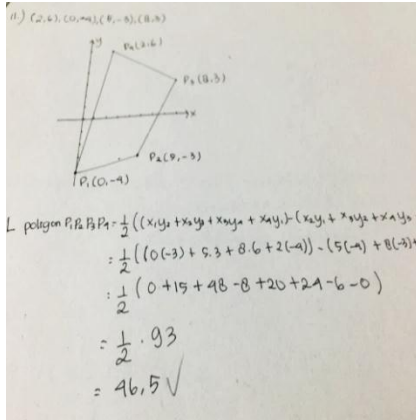 11.) (2,6), (0,-4), (5,-3), (8,3)
y
P4(2,6)
P3(8,3)
x
P2(5,-3)
P1(0,-4)
L polygon P1P2P3P4 = 1/2 ((x1y2 + x2y3 + x3y4 + x4y1) - (x2y1 + x3y2 + x4y3
= 1/2 ((0(-3) + 5.3 + 8.6 + 2(-4)) - (5(-4) + 8(-3)+
= 1/2 (0 + 15 + 48 - 8 + 20 + 24 - 6 - 0)
= 1/2 . 93
= 46,5 √